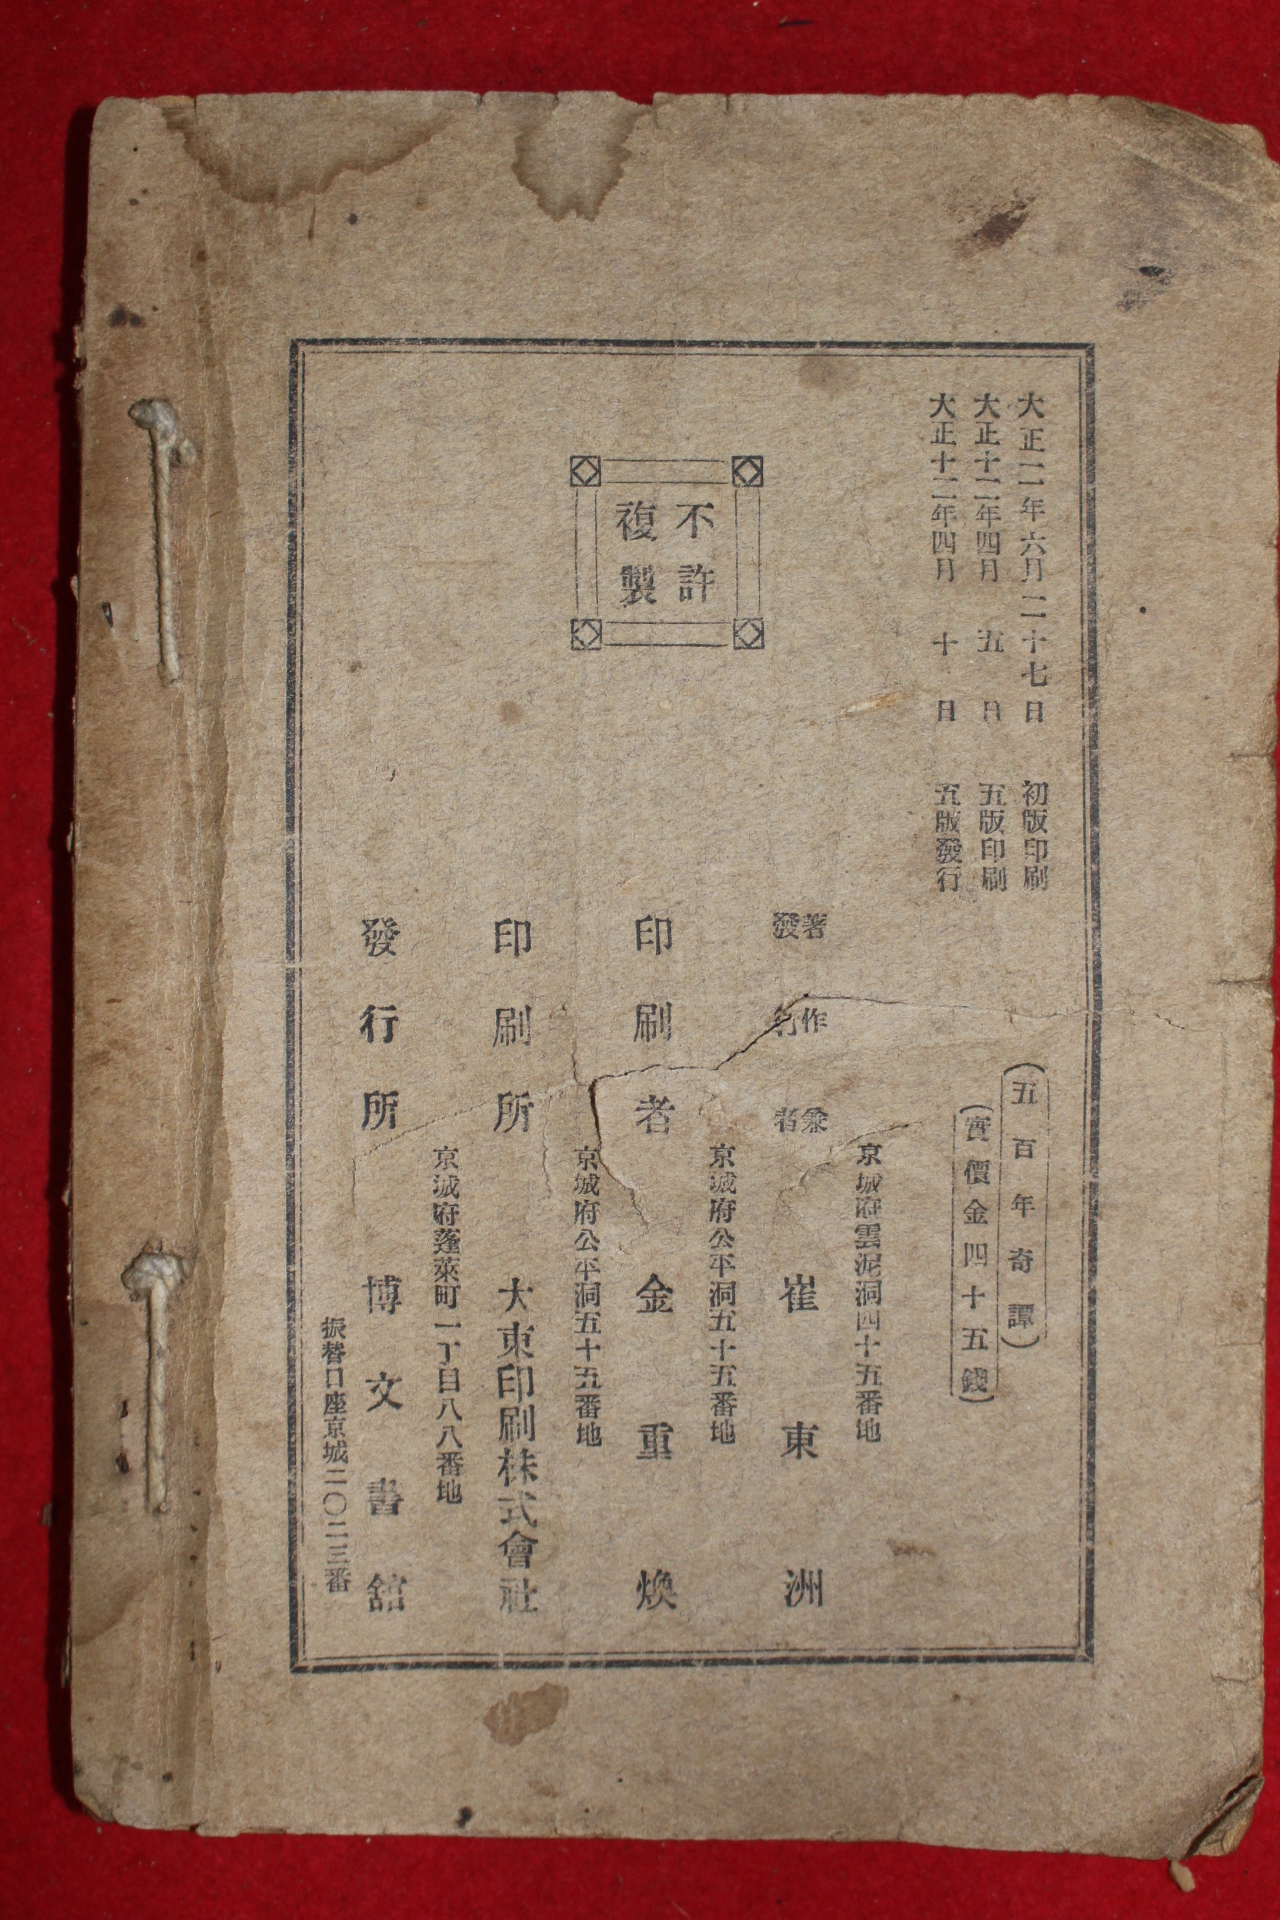 大正二年六月二十七日 初版印刷
大正十二年四月五日 五版印刷
大正十二年四月十日 五版發行
(五百年奇譚)
(實價金四十五錢)
不許
複製
京城府雲泥洞四十五番地
著作兼
發行者 崔東洲
京城府公平洞五十五番地
印刷者 金重煥
京城府公平洞五十五番地
印刷所 大東印刷株式會社
京城府蓬萊町一丁目八八番地
發行所 博文書舘
振替口座京城二〇二三番